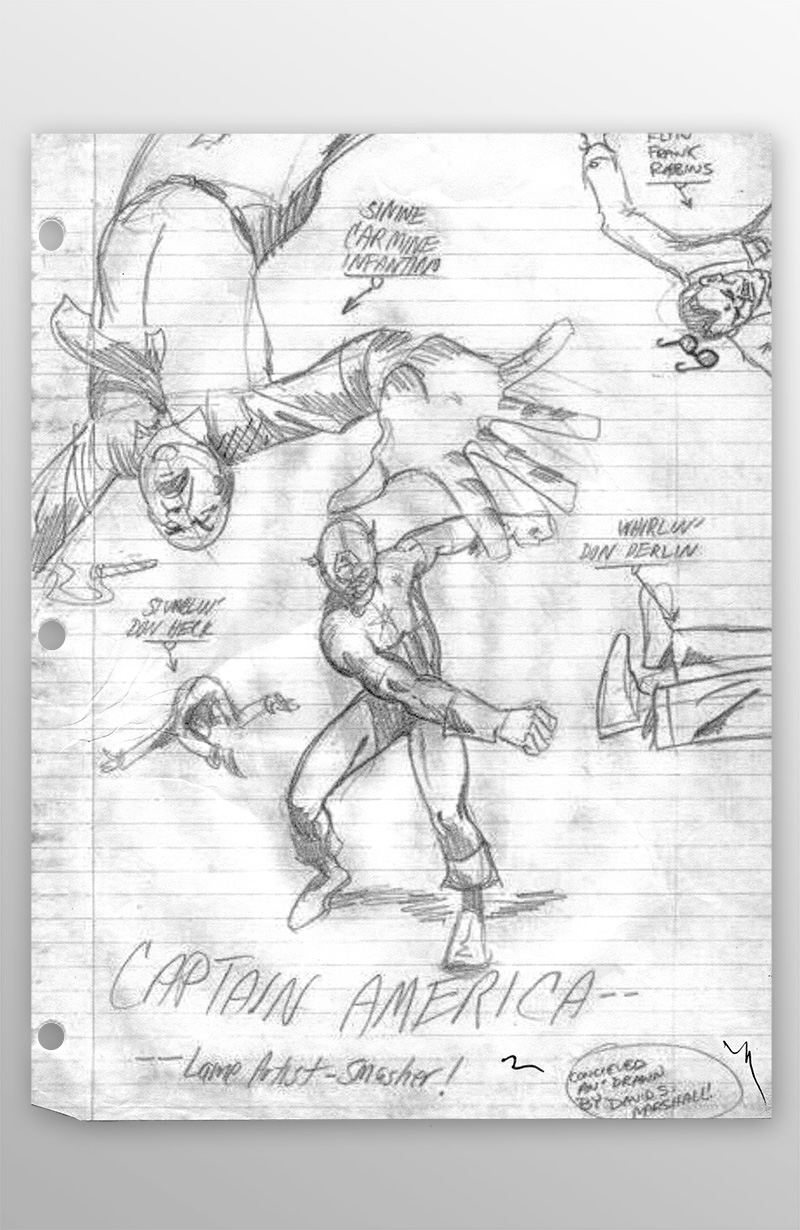 FLYIN'
FRANK
ROBINS
SIMME
CARMINE
INFANTINO
WHIRLIN'
DON PERLIN
STUMBLIN'
DON HECK
CAPTAIN AMERICA--
--Lame Artist-Smasher!
CONCIEVED
AN' DRAWN
BY DAVID S.
MARSHALL!